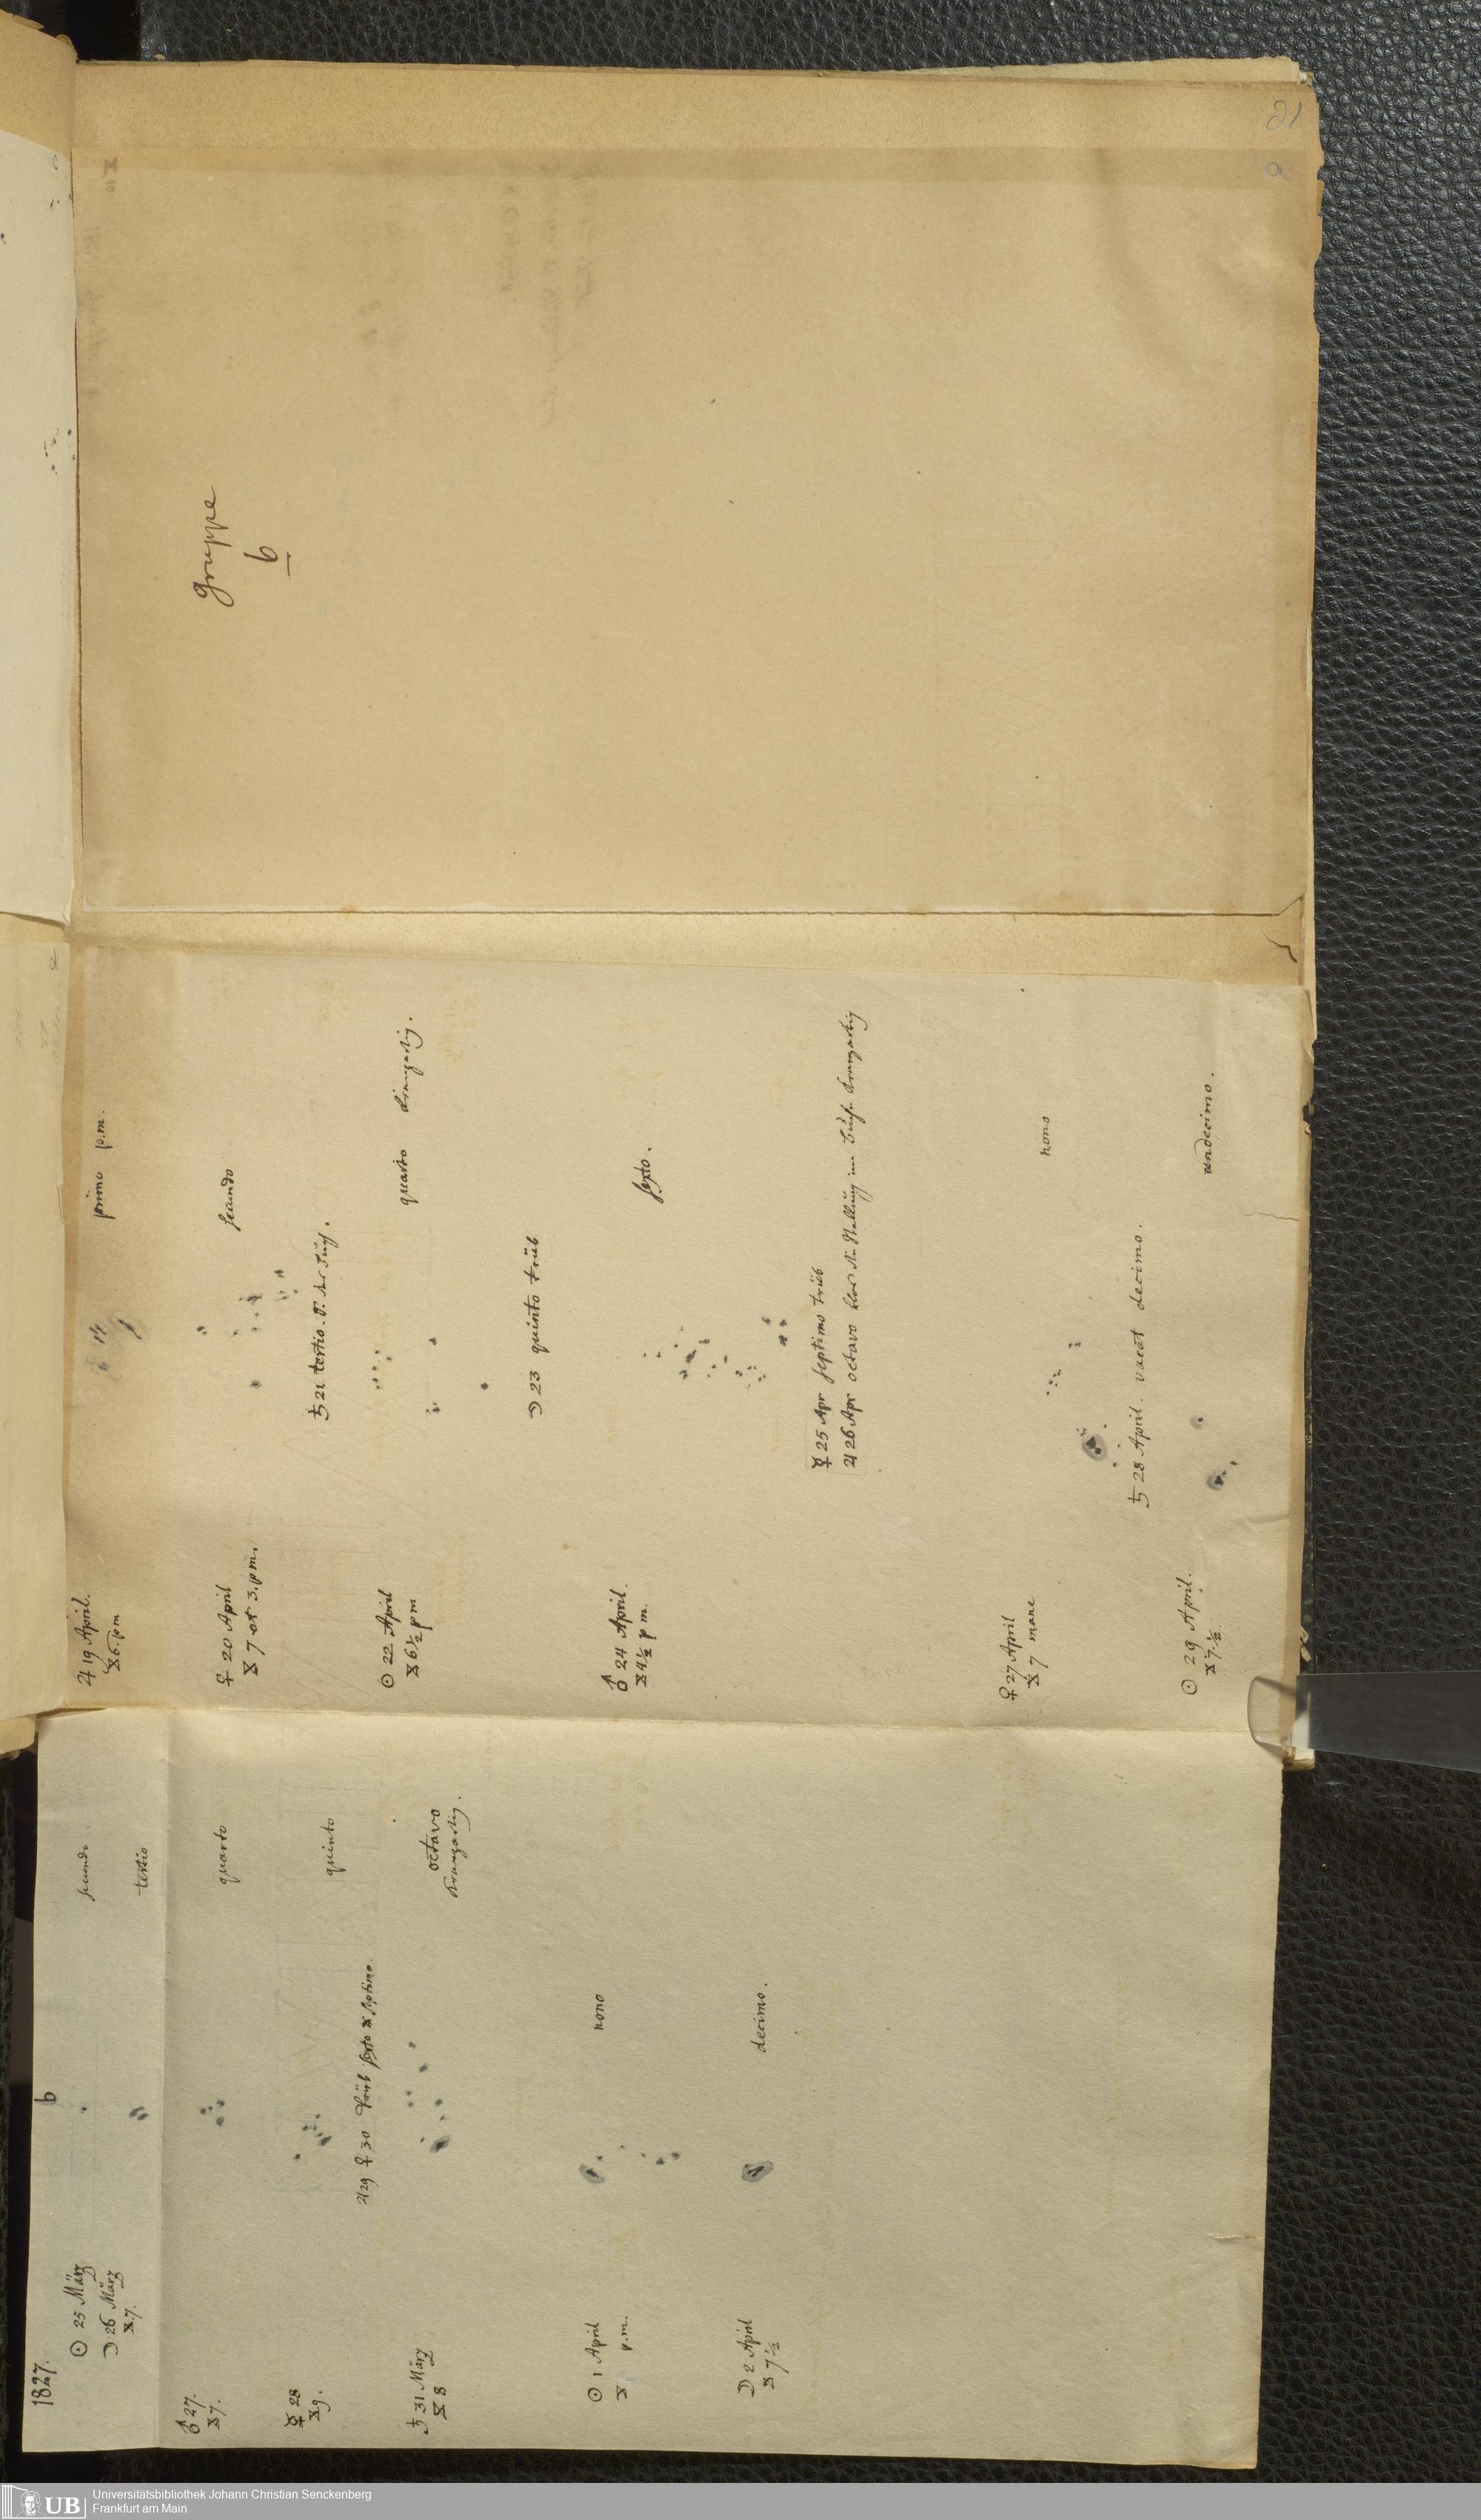 21
a
Gruppe
b
1827.
b
☉ 25 März
secundo
☽ 26 März
⧖ 7.
tertio
♂ 27.
⧖ 7.
quarto
☿ 28
⧖ 9.
quinto
♃ 29 ♀ 30 trüb sexto & septimo.
♄ 31 März
⧖ 8
octavo
☉ 1 April
⧖ p.m.
nono
☽ 2 April
⧖ 7 1/2
decimo.
♃ 19 April.
⧖ 6. p m
primo p.m.
♀ 20 April
⧖ 7 et 3. p m.
secundo
♄ 21 tertio.
☉ 22 April
⧖ 6 1/2 p m
quarto
☽ 23 quinto trüb
♂ 24 April.
⧖ 4 1/2 p m.
sexto.
☿ 25 Apr septimo trüb
♃ 26 Apr octavo
♀ 27 April
⧖ 7 mane
nono
♄ 28 April. vacat decimo.
☉ 29 April.
⧖ 7. 1/2.
undecimo.
UB
Universitätsbibliothek Johann Christian Senckenberg
Frankfurt am Main